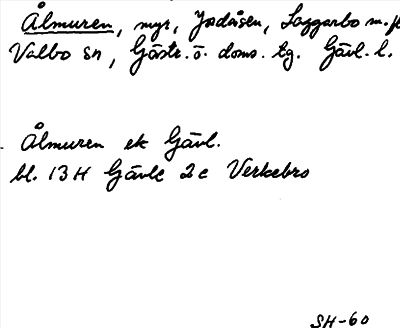 Ålmuren, myr, Jädåsen, Laggarbo m. fl
Valbo sn, Gästr. ö. doms. tg. Gävl. l.
Ålmuren ek Gävl.
bl. 13 H Gävle 2c Verkebro
SH-60